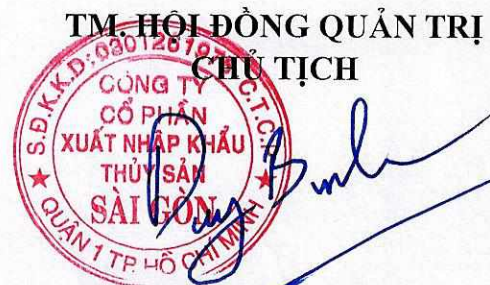 TM. HỘI ĐỒNG QUẢN TRỊ
CHỦ TỊCH
S.Đ.K.K.D: C.T.C.P
CÔNG TY
CỔ PHẦN
XUẤT NHẬP KHẨU
THỦY SẢN
SÀI GÒN
QUẬN 1 TP. HỒ CHÍ MINH